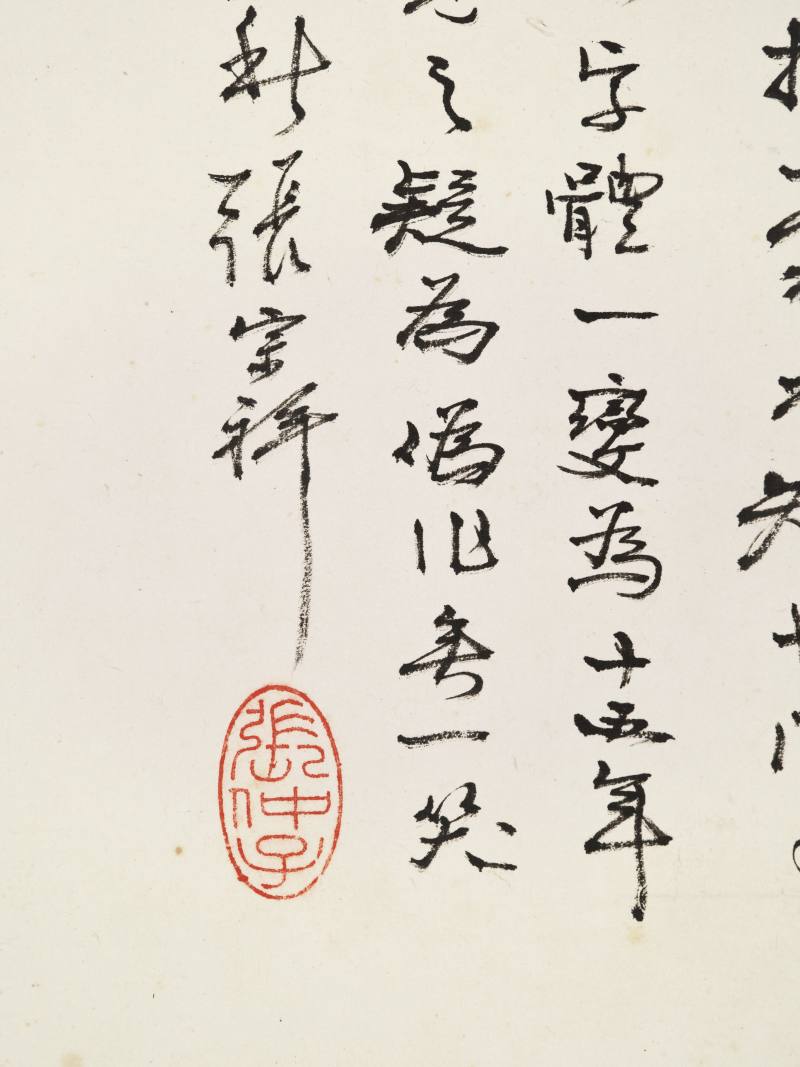 知
字體一變為十五年
之疑為偽作一笑
秋張宗祥
張仲子